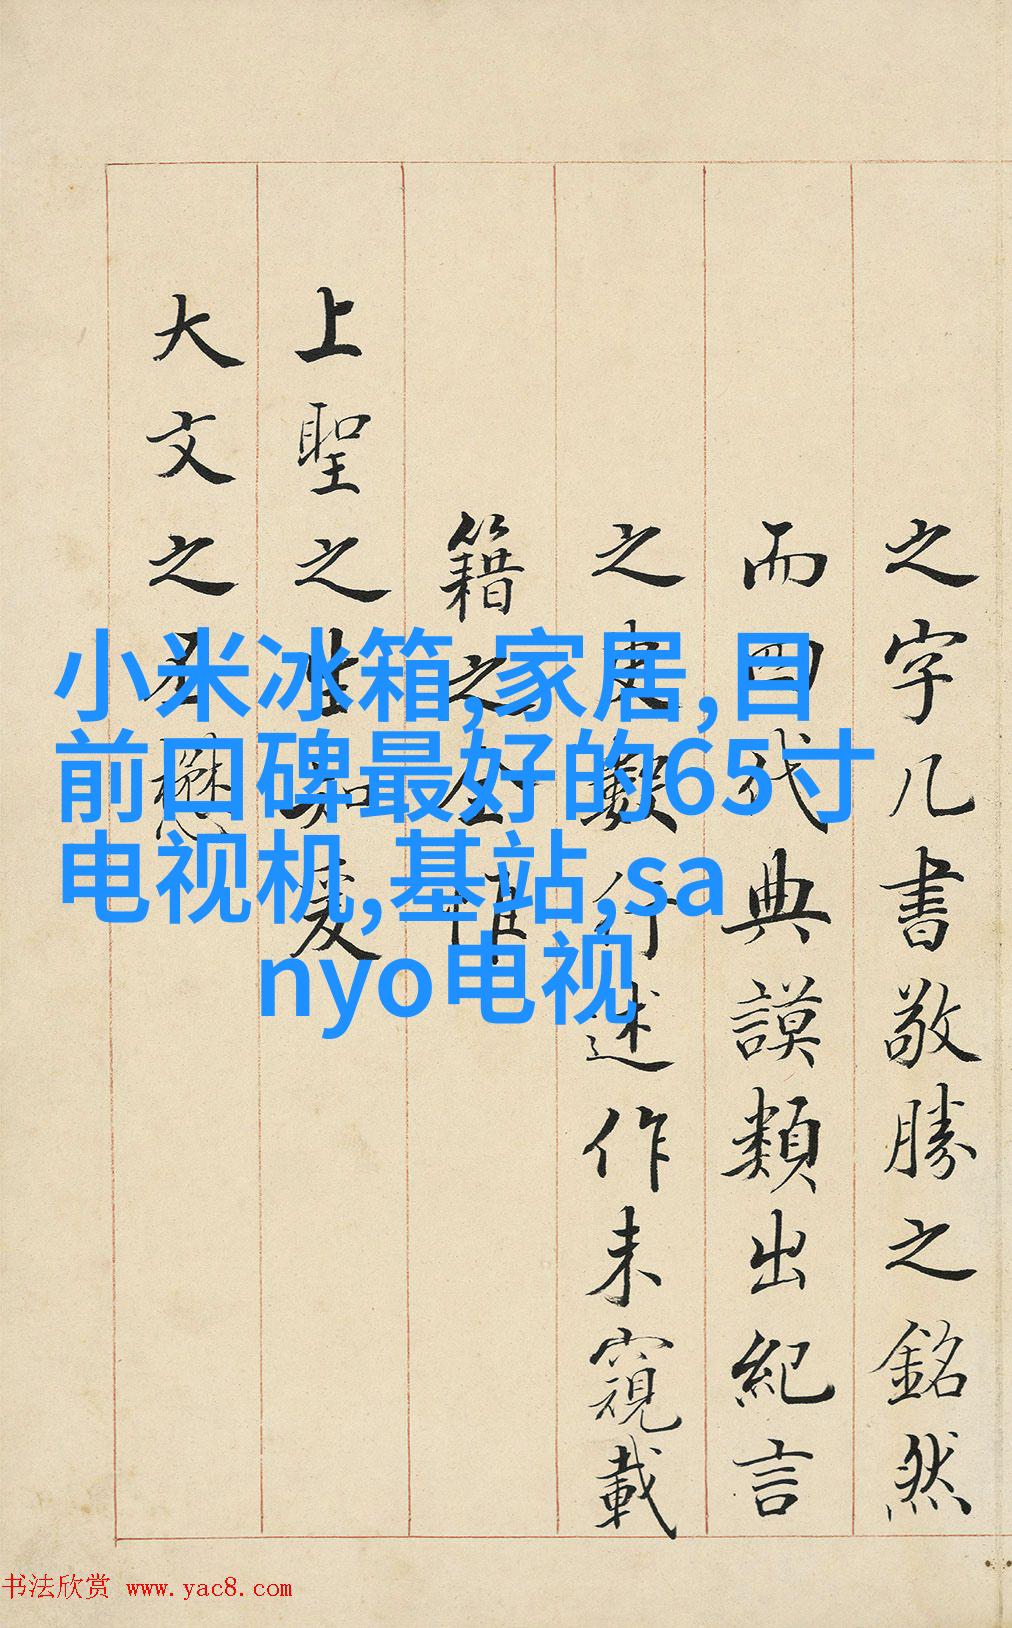 之字几書敬勝之銘然
而四代典謨類出紀言
之史數行述作未窺載
籍之全惟
上聖之生知爰
大文之丕懋
小米冰箱,家居,目
前口碑最好的65寸
电视机,基站,sa
nyo电视
书法欣赏 www.yac8.com